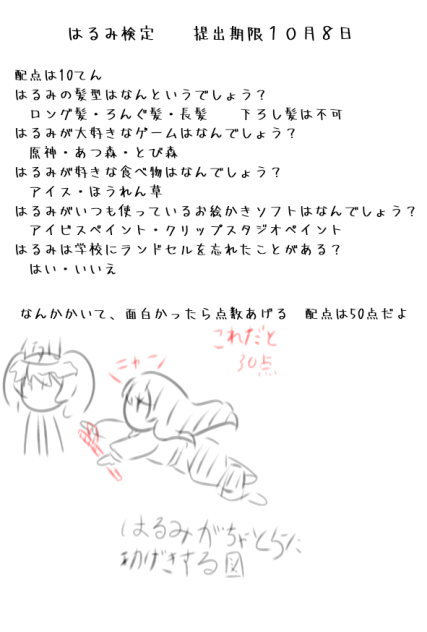 はるみ検定　　提出期限１０月８日
配点は10てん
はるみの髪型はなんというでしょう？
ロング髪・ろんぐ髪・長髪　　下ろし髪は不可
はるみが大好きなゲームはなんでしょう？
原神・あつ森・とび森
はるみが好きな食べ物はなんでしょう？
アイス・ほうれん草
はるみがいつも使っているお絵かきソフトはなんでしょう？
アイビスペイント・クリップスタジオペイント
はるみは学校にランドセルを忘れたことがある？
はい・いいえ
なんかかいて、面白かったら点数あげる　配点は50点だよ
これだと
30点
ニャン
はるみがちゃとらに
する図